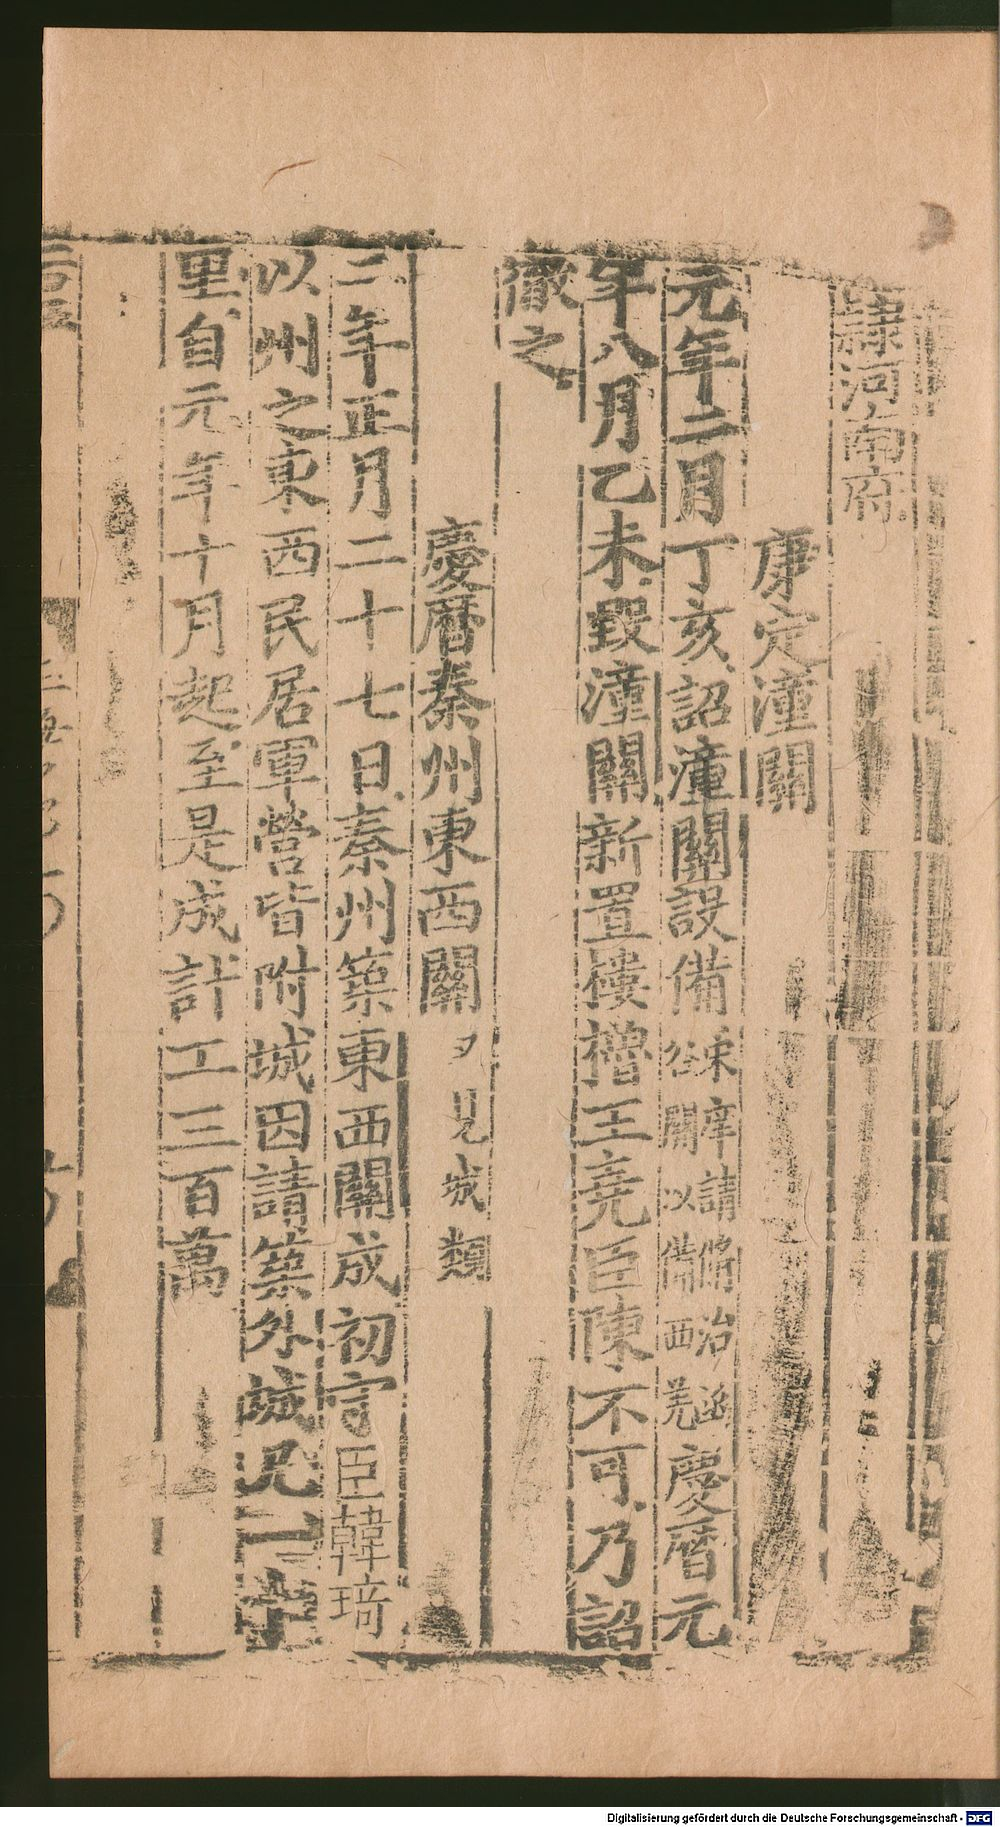 隷河南府
康定潼關
元年二月丁亥詔潼關設備宋庠請脩治函谷關以備西羌慶曆元
年八月乙未毀潼關新置樓櫓王堯臣陳不可乃詔
徹之
慶曆秦州東西關又見城類
三年正月二十七日秦州築東西關成初言臣韓琦
以州之東西民居軍營皆附城因請築外城凡一十
里自元年十月起至是成計工三百萬
Digitalisierung gefördert durch die Deutsche Forschungsgemeinschaft - DFG